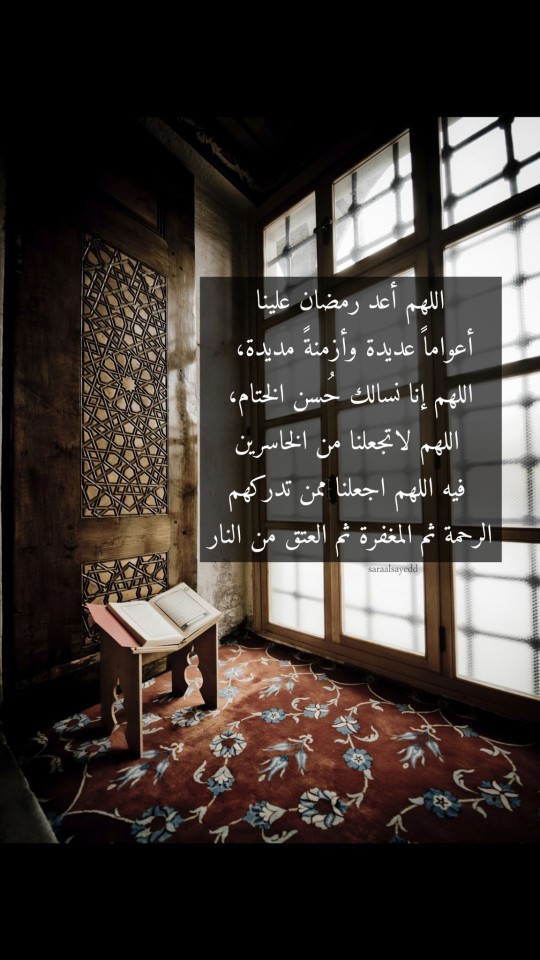 اللهم أعد رمضان علينا
أعواماً عديدة وأزمنةً مديدة،
اللهم إنا نسالك حُسن الختام،
اللهم لاتجعلنا من الخاسرين
فيه اللهم اجعلنا ممن تدركهم
الرحمة ثم المغفرة ثم العتق من النار
saraalsayedd